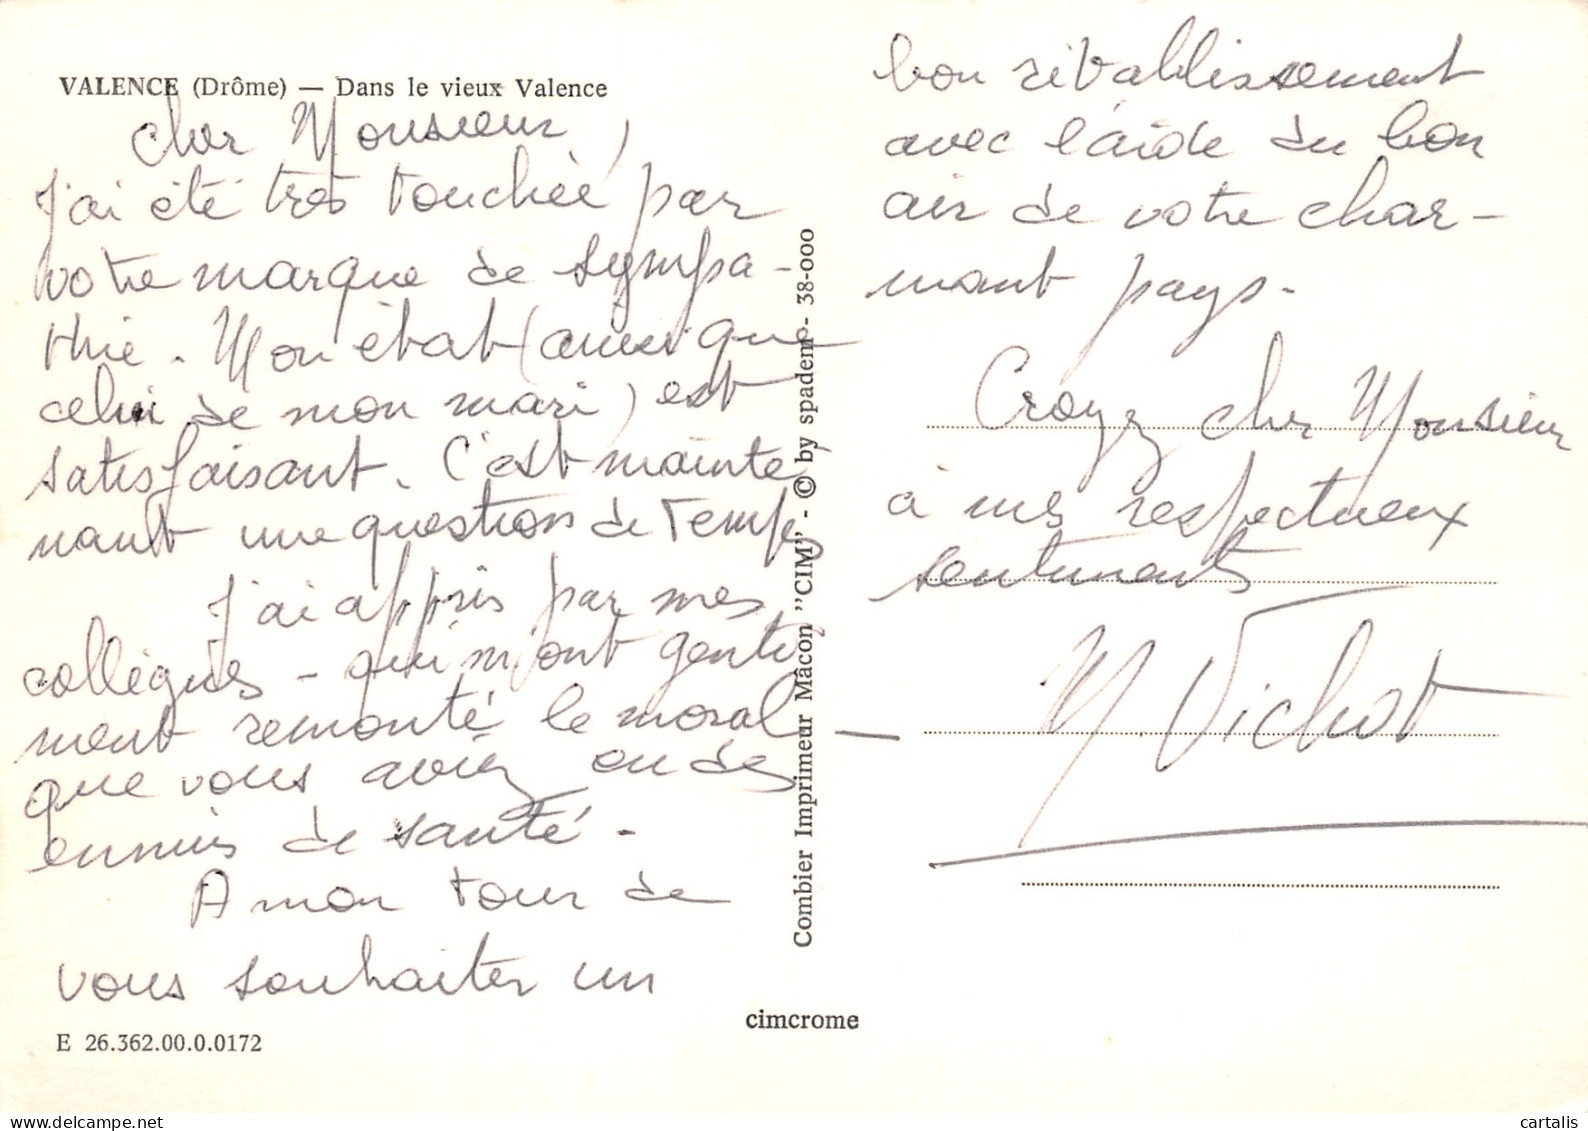 VALENCE (Drôme) — Dans le vieux Valence
Cher Monsieur,
J'ai été très touchée par
votre marque de sympa-
thie. Mon état (ainsi que
celui de mon mari) est
satisfaisant. C'est mainte
nant une question de temps
J'ai appris par mes
collègues - qui m'ont genti
ment remonté le moral -
que vous aviez eu des
ennuis de santé -
A mon tour de
vous souhaiter un
E 26.362.00.0.0172
Combier Imprimeur Mâcon "CIM" - © by spadem - 38-000
cimcrome
bon rétablissement
avec l'aide du bon
air de votre char-
mant pays -
Croyez cher Monsieur
à mes respectueux
sentiments
M. Vichot
cartalis